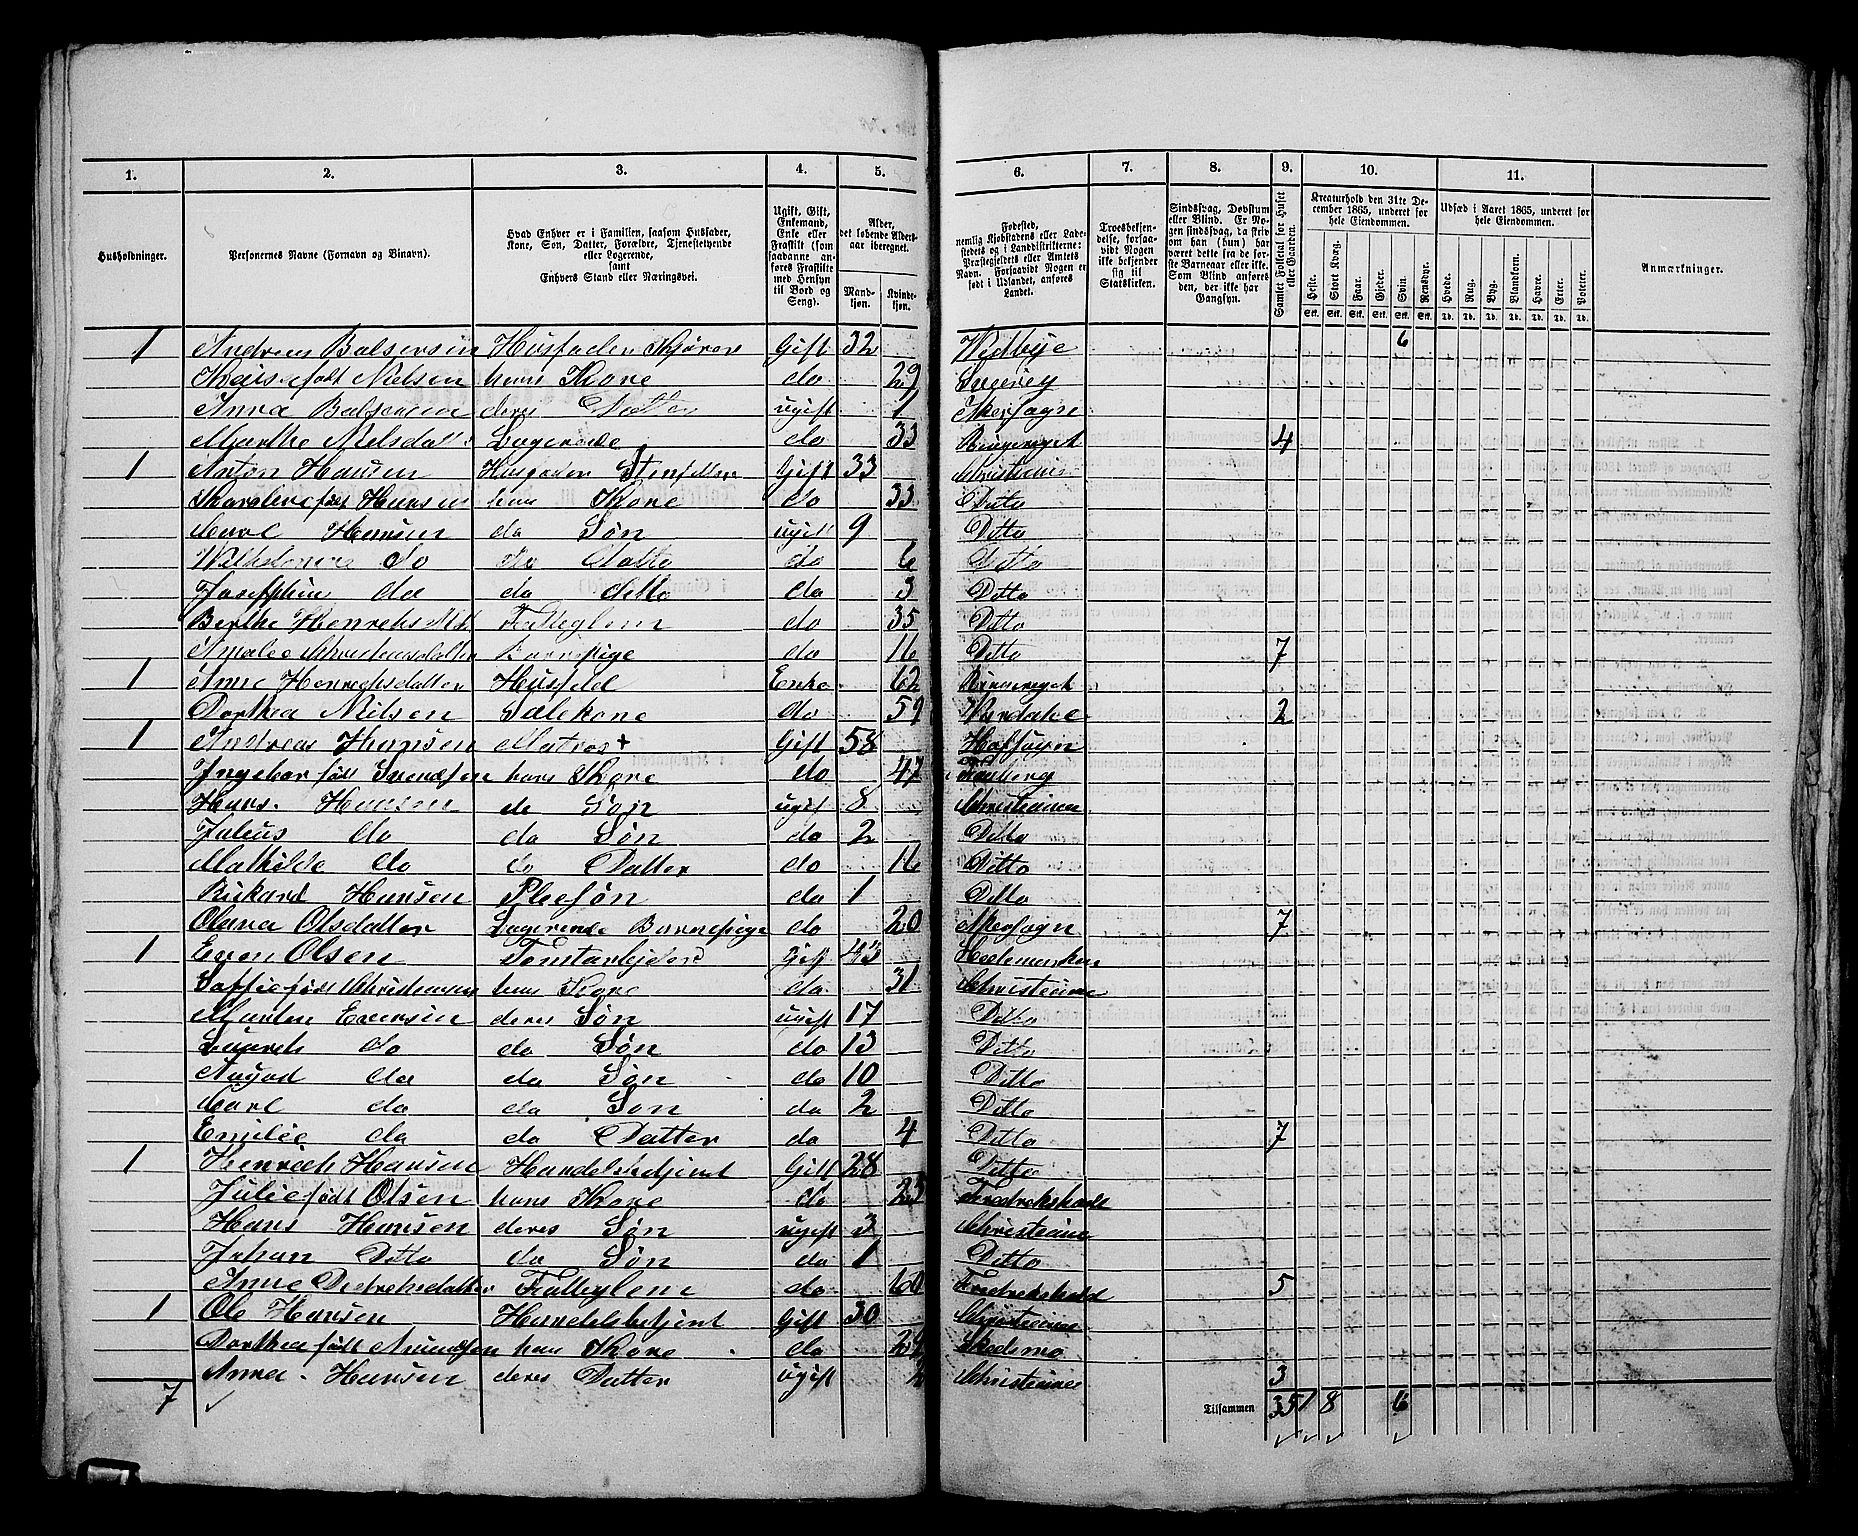 1. 2. 3. 4. 5. 6. 7. 8. 9. 10. 11.
Husholdninger.
Personernes Navne (Fornavn og Binavn).
Hvad Enhver er i Familien, saasom Husfader, Kone, Søn, Datter, Forældre, Tjenestetyende eller Logerende, samt Enhvers Stand eller Næringsvei.
Ugift, Gift, Enkemand, Enke eller Fraskilt (som saadanne anføres Fraskilte med Hensyn til Bord og Seng).
Alder, det løbende Aldersaar iberegnet.
Mandkjøn. Kvindekjøn.
Fødested, nemlig Kjøbstadens eller Ladestedets og i Landdistrikterne: Præstegjeldets eller Amtets Navn. Forsaavidt Nogen er født i Udlandet, anføres Landet.
Troesbekjendelse, forsaavidt Nogen ikke bekjender sig til Statskirken.
Sindssvag, Døvstum eller Blind. Er Nogen sindssvag, da skrives om han (hun) har været dette fra de første Barneaar eller ikke. Som Blind anføres den, der ikke har Gangsyn.
Samlet Folketal for Huset eller Gaarden.
Kreaturhold den 31te December 1865, underet for hele Eiendommen.
Heste. Stort Kvæg. Faar. Gjeder. Svin. Rensdyr.
Udsæd i Aaret 1865, underet for hele Eiendommen.
Hvede. Rug. Byg. Blandkorn. Havre. Erter. Poteter.
Anmærkninger.
Stk. Stk. Stk. Stk. Stk. Stk. Td. Td. Td. Td. Td. Td. Td.
1 Andreas Balsersen Husfader Gift 32 6
født Nielsen hans Kone do 29
Anna Balsersen deres Datter ugift 1 Akersogn
Marthe Nielsdatt Logerende do 33 Ringeriget 4
1 Anton Hansen Husfader Gift 33 Christiania
født Hansen hans Kone do 33 Ditto
Carl Hansen do Søn ugift 9 Ditto
do do Datter do 6 Ditto
Josephine do do ditto do 3 Ditto
Berthe do 35 Ditto
Amalie Christensdatter Barnepige do 16 Ditto 7
1 Anne Henrichsdatter Enke 62 Ringeriget
Dorthea Nielsen Sælekone do 59 2
1 Andreas Hansen Matros + Gift 58
Ingebor født Svendsen hans Kone do 47
Hans Hansen do Søn ugift 8 Christiania
Julius do do Søn do 2 Ditto
Mathilde do do Datter do 16 Ditto
Rikard Hansen Pleesøn do 1 Ditto
Olava Olsdatter Logerende Barnepige do 20 Akersogn 7
1 Even Olsen Gift 43
født Christensen hans Kone do 31 Christiania
Martin Evensen deres Søn ugift 17 Ditto
do do Søn do 13 Ditto
do do Søn do 10 Ditto
Carl do do Søn do 2 Ditto
Emilie do do Datter do 4 Ditto 7
1 Henrich Hansen Handelsbetjent Gift 28 Ditto
Julie født Olsen hans Kone do Fredrikshald
Hans Hansen deres Søn ugift 3 Christiania
Johan Ditto do Søn do 1 Ditto
Anne Dedreksdatter do 60 Fredrikshald 5
1 Ole Hansen Handelsbetjent Gift 30 Christiania
Dorthea født Amundsen hans Kone do 29 Skedsmo
Anna Hansen deres Datter ugift 2 Christiania 3
7 ✓ Tilsammen 35 1 8 6